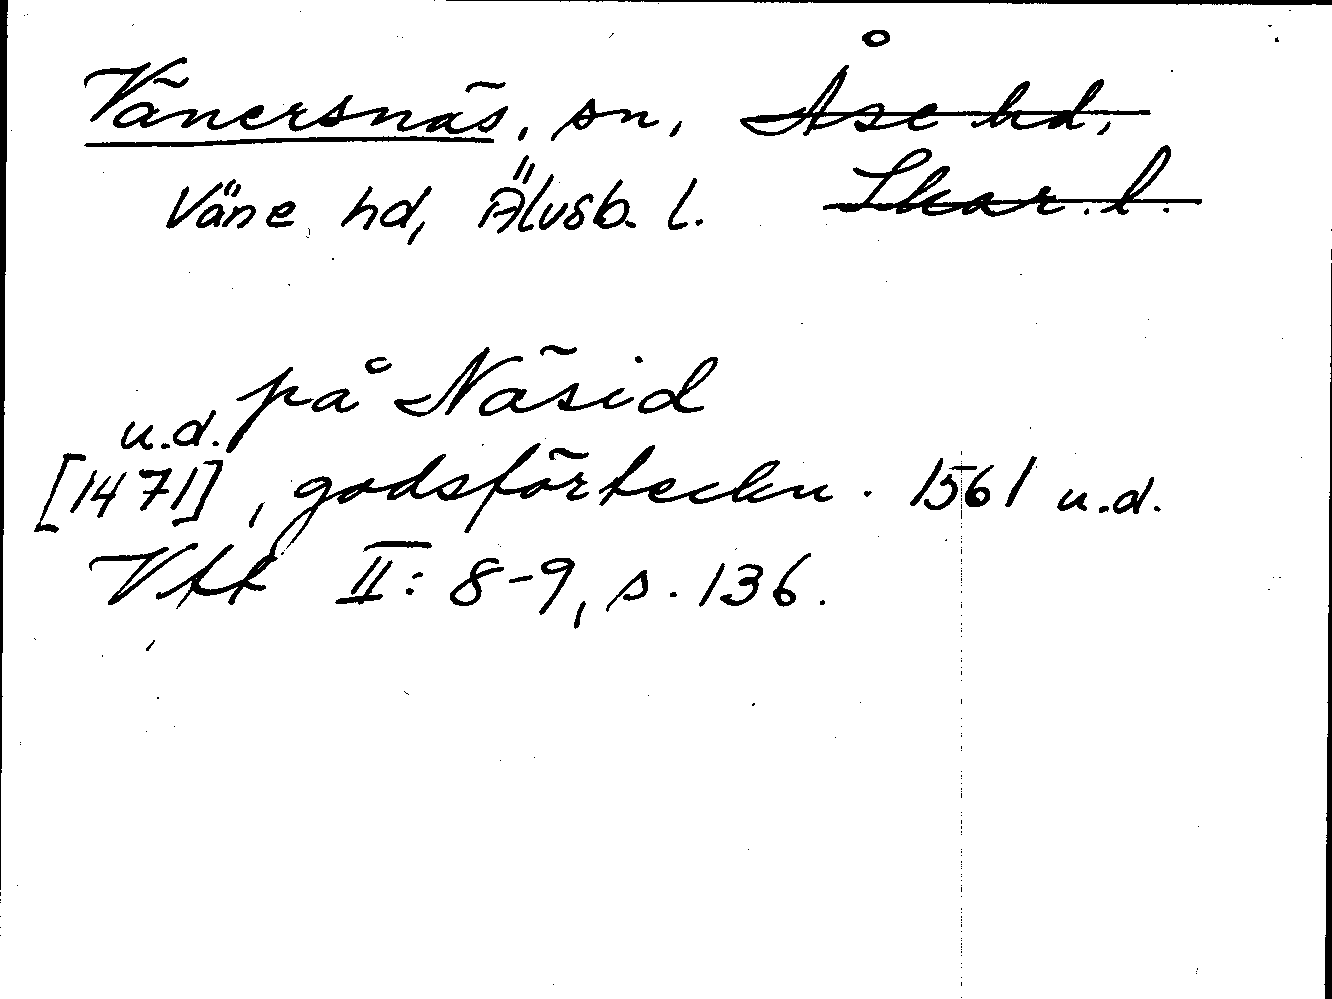 Vänersnäs, sn, Åse hd,
Väne hd, Älvsb. l. Skar. l.
på Näsid
u.d.
[1471], godsförteckn. 1561 u.d.
Vtf II: 8-9, s. 136.